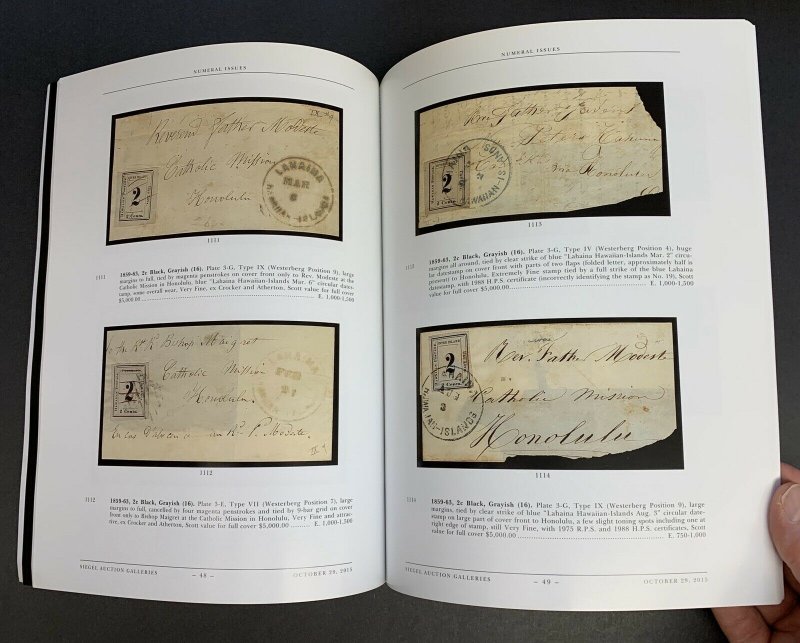 NUMERAL ISSUES
Reverend Father Modeste
Catholic Mission
Honolulu
LAHAINA
MAR
6
HAWAIIAN-ISLANDS
2
2 Cents.
1111
1111 1859-63, 2c Black, Grayish (16). Plate 3-G, Type IX (Westerberg Position 9), large
margins to full, tied by magenta penstrokes on cover front only to Rev. Modeste at the
Catholic Mission in Honolulu, blue "Lahaina Hawaiian-Islands Mar. 6" circular date-
stamp, some overall wear, Very Fine, ex Crocker and Atherton, Scott value for full cover
$5,000.00 E. 1,000-1,500
to the Rt. R. Bishop Maigret
Catholic Mission
Honolulu.
LAHAINA
FEB
21
2
2 Cents.
P. Modeste.
1112
1112 1859-63, 2c Black, Grayish (16). Plate 3-E, Type VII (Westerberg Position 7), large
margins to full, cancelled by four magenta penstrokes and tied by 9-bar grid on cover
front only to Bishop Maigret at the Catholic Mission in Honolulu, Very Fine and attrac-
tive, ex Crocker and Atherton, Scott value for full cover $5,000.00 E. 1,000-1,500
SIEGEL AUCTION GALLERIES – 48 – OCTOBER 29, 2015
NUMERAL ISSUES
Father
Honolulu
HAWAIIAN
2
2 Cents.
1113
1113 1859-63, 2c Black, Grayish (16). Plate 3-G, Type IV (Westerberg Position 4), huge
margins all around, tied by clear strike of blue "Lahaina Hawaiian-Islands Mar. 2" circu-
lar datestamp on cover front with parts of two flaps (folded letter, approximately half is
present) to Honolulu, Extremely Fine stamp tied by a full strike of the blue Lahaina
datestamp, with 1988 H.P.S. certificate (incorrectly identifying the stamp as No. 19), Scott
value for full cover $5,000.00 E. 1,000-1,500
Rev. Father Modeste
Catholic Mission
Honolulu
AUG
3
HAWAIIAN-ISLANDS
2
2 Cents.
1114
1114 1859-63, 2c Black, Grayish (16). Plate 3-G, Type IX (Westerberg Position 9), large
margins, tied by clear strike of blue "Lahaina Hawaiian-Islands Aug. 3" circular date-
stamp on large part of cover front to Honolulu, a few slight toning spots including one at
right edge of stamp, still Very Fine, with 1975 R.P.S. and 1988 H.P.S. certificates, Scott
value for full cover $5,000.00 E. 750-1,000
SIEGEL AUCTION GALLERIES – 49 – OCTOBER 29, 2015